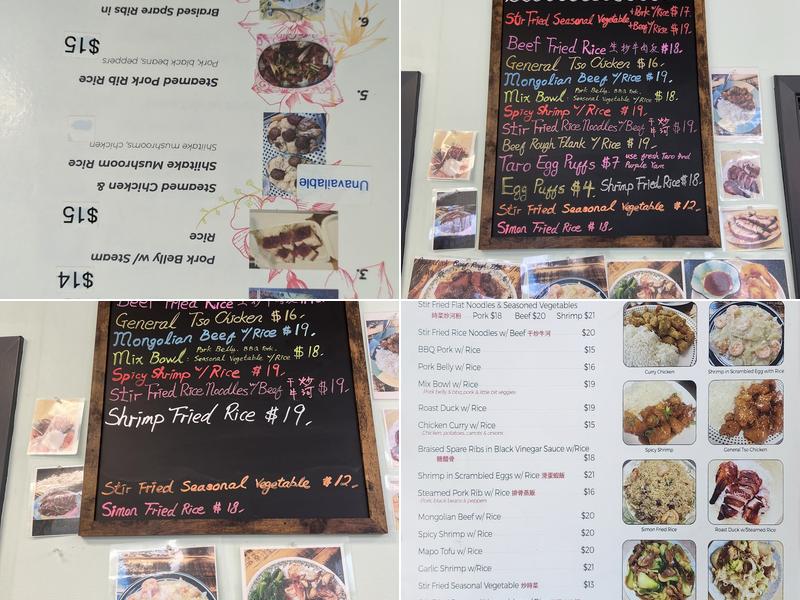 6.
Braised Spare Ribs in
$15
Pork, black beans, peppers
Steamed Pork Rib Rice
5.
Shiitake mushrooms, chicken
Shiitake Mushroom Rice
Steamed Chicken &
Unavailable
$15
Rice
Pork Belly w/ Steam
3.
$14
Stir Fried Seasonal Vegetable +Pork w/Rice $17.
+Beef w/Rice $19.
Beef Fried Rice 生炒牛肉飯 $18.
General Tso Chicken $16.
Mongolian Beef w/Rice $19.
Mix Bowl: Pork Belly. BBQ Pork.
Seasonal Vegetable w/Rice $18.
Spicy Shrimp w/Rice $19.
Stir Fried Rice Noodles w/Beef 干炒牛河 $19.
Beef Rough Flank w/Rice $19.
Taro Egg Puffs $7 use fresh Taro And
Purple Yam
Egg Puffs $4. Shrimp Fried Rice $18.
Stir Fried Seasonal Vegetable $12.
Simon Fried Rice $18.
Beef Fried Rice
General Tso Chicken $16.
Mongolian Beef w/Rice $19.
Mix Bowl: Pork Belly. BBQ Pork.
Seasonal Vegetable w/Rice $18.
Spicy Shrimp w/Rice $19.
Stir Fried Rice Noodles w/Beef 干炒牛河 $19.
Shrimp Fried Rice $19.
Stir Fried Seasonal Vegetable $12.
Simon Fried Rice $18.
Stir Fried Flat Noodles & Seasoned Vegetables
時菜炒河粉 Pork $18 Beef $20 Shrimp $21
Stir Fried Rice Noodles w/ Beef 干炒牛河 $20
BBQ Pork w/ Rice $15
Pork Belly w/ Rice $16
Mix Bowl w/ Rice $19
Pork belly & bbq pork & little bit veggies
Roast Duck w/ Rice $19
Chicken Curry w/ Rice $15
Chicken, potatoes, carrots & onions
Braised Spare Ribs in Black Vinegar Sauce w/Rice
糖醋骨 $18
Shrimp in Scrambled Eggs w/ Rice 滑蛋蝦飯 $21
Steamed Pork Rib w/ Rice 排骨蒸飯 $16
Pork, black beans & peppers
Mongolian Beef w/ Rice $20
Spicy Shrimp w/ Rice $20
Mapo Tofu w/ Rice $20
Garlic Shrimp w/ Rice $21
Stir Fried Seasonal Vegetable 炒時菜 $13
Curry Chicken
Shrimp in Scrambled Egg with Rice
Spicy Shrimp
General Tso Chicken
Simon Fried Rice
Roast Duck w/Steamed Rice